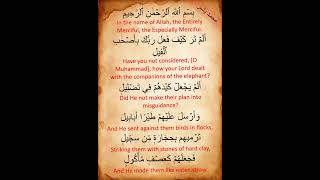 بِسْمِ اللَّهِ الرَّحْمَنِ الرَّحِيمِ
In the name of Allah, the Entirely
Merciful, the Especially Merciful.
أَلَمْ تَرَ كَيْفَ فَعَلَ رَبُّكَ بِأَصْحَابِ
الْفِيلِ
Have you not considered, [O
Muhammad], how your Lord dealt
with the companions of the elephant?
أَلَمْ يَجْعَلْ كَيْدَهُمْ فِي تَضْلِيلٍ
Did He not make their plan into
misguidance?
وَأَرْسَلَ عَلَيْهِمْ طَيْرًا أَبَابِيلَ
And He sent against them birds in flocks,
تَرْمِيهِم بِحِجَارَةٍ مِّن سِجِّيلٍ
Striking them with stones of hard clay,
فَجَعَلَهُمْ كَعَصْفٍ مَّأْكُولٍ
And He made them like eaten straw.